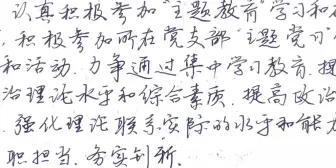 认真积极参加"主题教育"学习和
,积极参加所在党支部"主题党习
和活动.力争通过集中学习教育.提
治理论水平和综合素质.提高政治
.强化理论联系实际的水平和能力
职担当.务实创新.